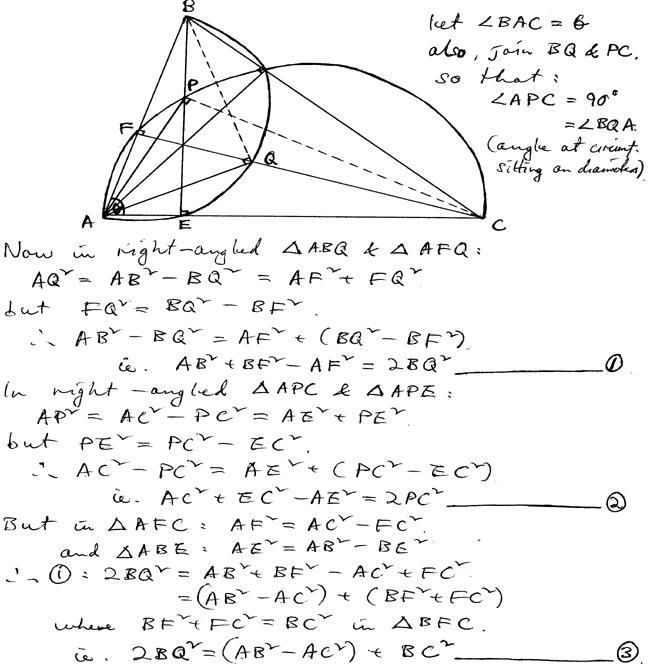 B
let ∠BAC = θ
also, join BQ & PC.
so that:
∠APC = 90°
= ∠BQA.
(angle at circumf.
sitting on diameter)
P
F
Q
θ
A
E
C
Now in right-angled △ABQ & △AFQ:
AQ² = AB² - BQ² = AF² + FQ²
but FQ² = BQ² - BF².
∴ AB² - BQ² = AF² + (BQ² - BF²)
ie. AB² + BF² - AF² = 2BQ² ①
In right-angled △APC & △APE:
AP² = AC² - PC² = AE² + PE²
but PE² = PC² - EC².
∴ AC² - PC² = AE² + (PC² - EC²)
ie. AC² + EC² - AE² = 2PC² ②
But in △AFC: AF² = AC² - FC²
and △ABE: AE² = AB² - BE²
∴ ①: 2BQ² = AB² + BF² - AC² + FC²
= (AB² - AC²) + (BF² + FC²)
where BF² + FC² = BC² in △BFC.
ie. 2BQ² = (AB² - AC²) + BC² ③